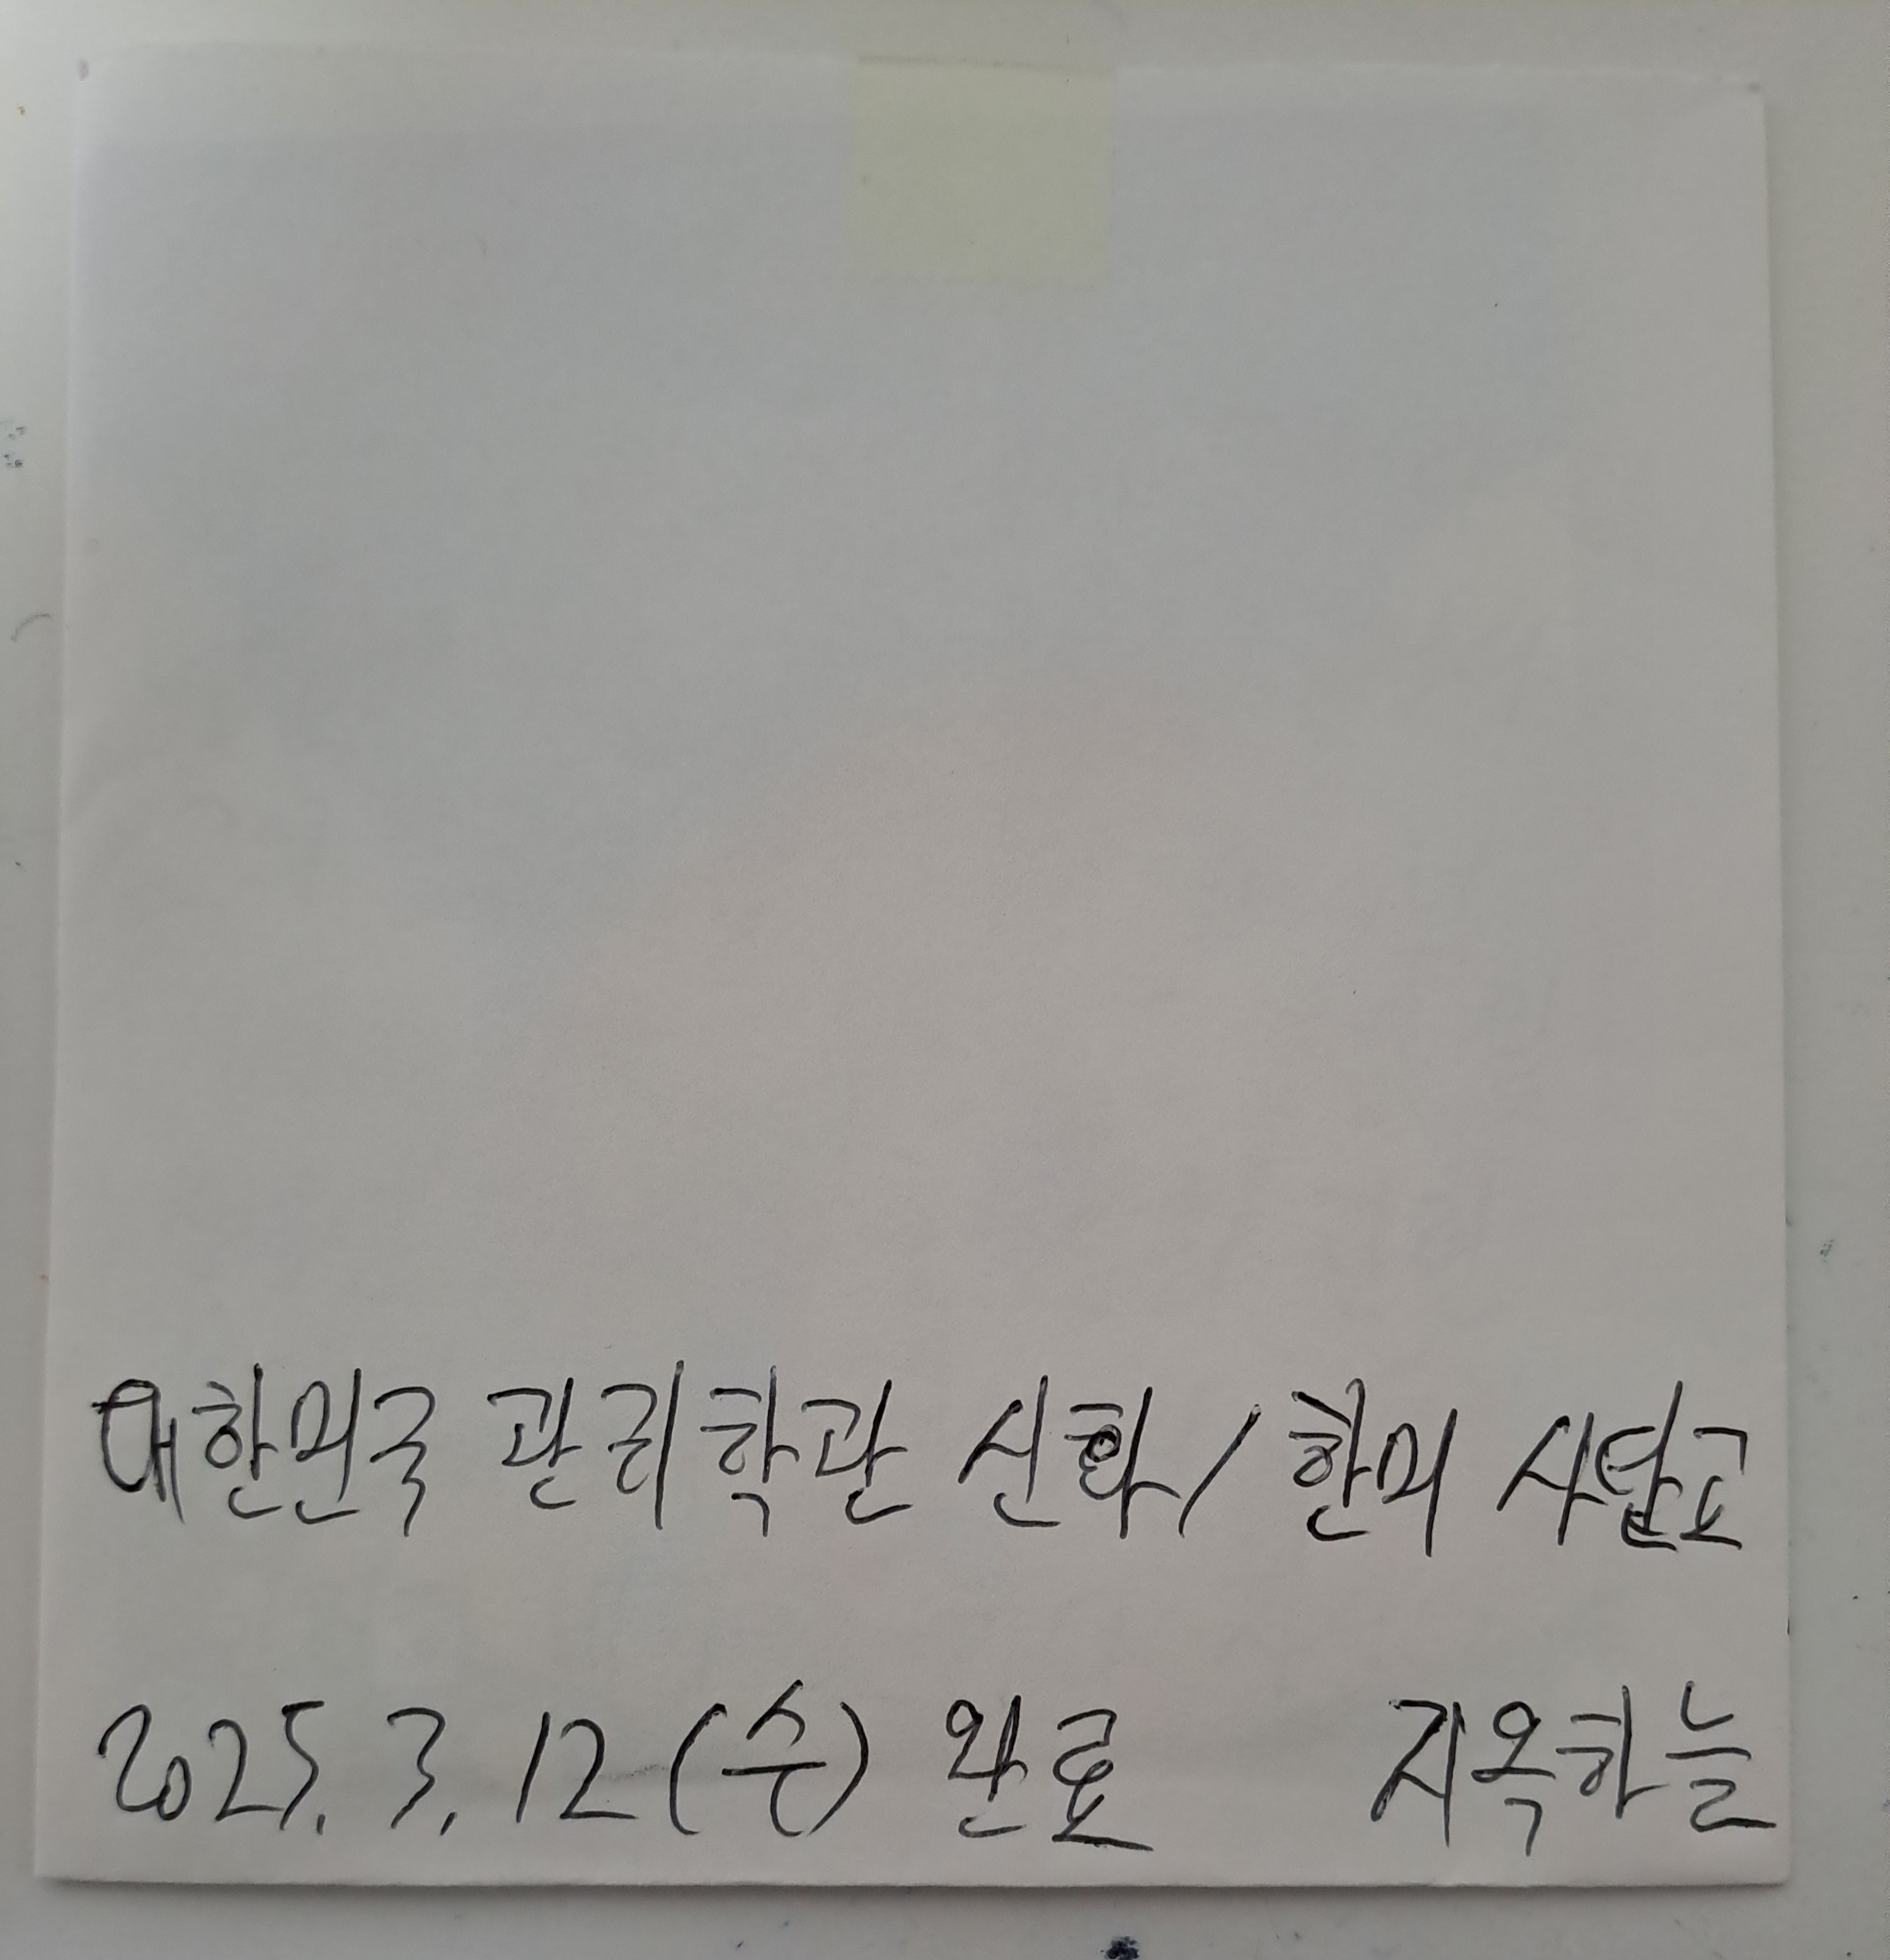 대한민국 관리학관 신화/한미 사단고
2025. 3. 12(수) 완료 지옥하늘